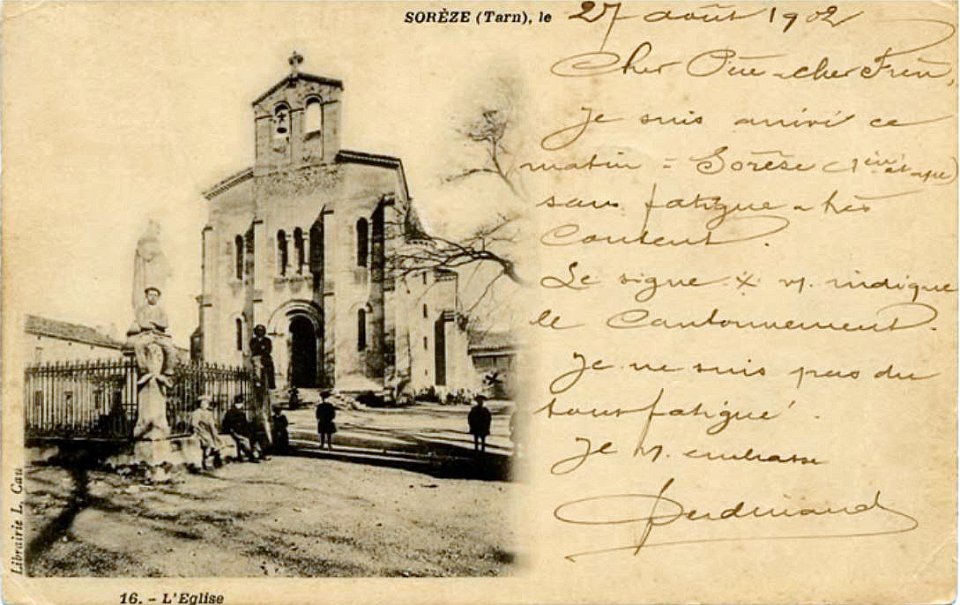 SORÈZE (Tarn), le 27 août 1902
Cher Père cher Frère,
Je suis arrivé ce
matin - Sorèze (1ère étape)
sans fatigue - très
Content.
Le signe x vs indique
le Cantonnement.
Je ne suis pas du
tout fatigué.
Je vs embrasse
Ferdinand
Librairie L. Cau
16. - L'Eglise